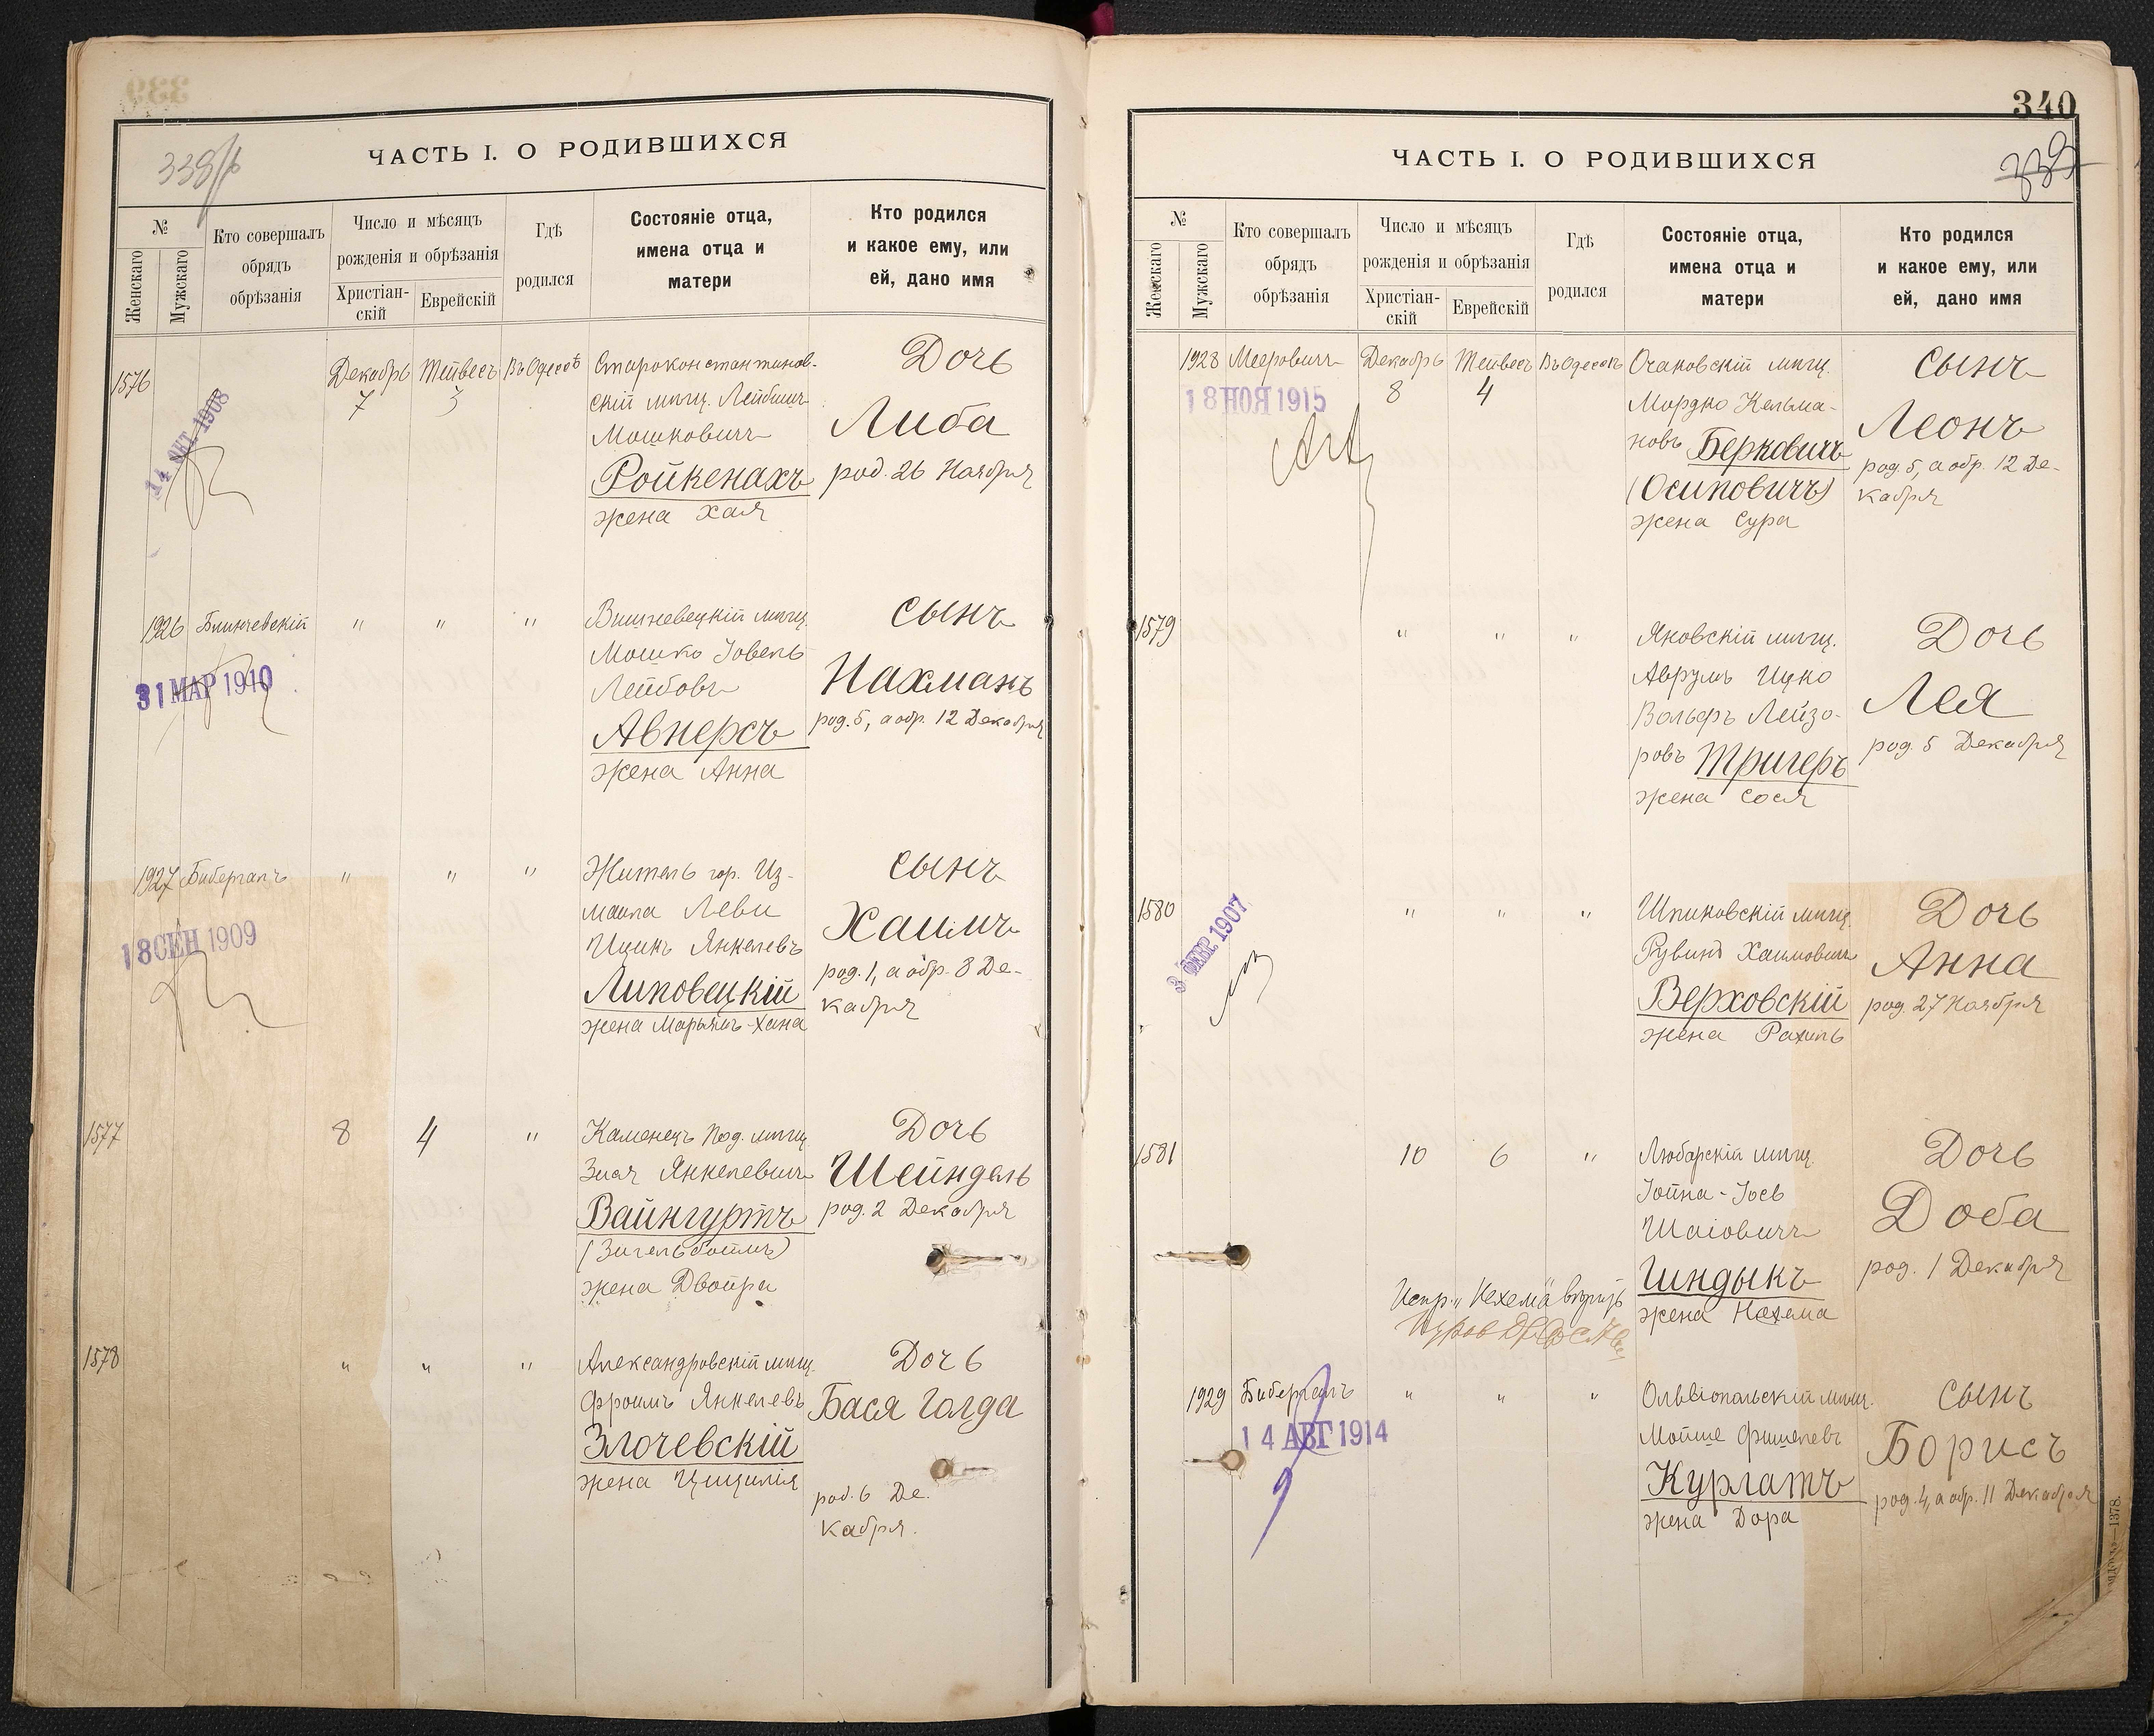 339
338/б
ЧАСТЬ I. О РОДИВШИХСЯ
№
Женскаго
Мужскаго
Кто совершалъ
обрядъ
обрѣзанія
Число и мѣсяцъ
рожденія и обрѣзанія
Христіан-
скій
Еврейскій
Гдѣ
родился
Состояніе отца,
имена отца и
матери
Кто родился
и какое ему, или
ей, дано имя
1576
14 ОКТ. 1908
Декабрь
7
Тейвесъ
3
Въ Одессѣ
Староконстантинов-
скій мѣщ. Лейбишъ
Мошковичъ
Ройкенахъ
жена Хая
Дочь
Либа
род. 26 Ноября
1926
Блинчевскій
31 МАР 1910
"
"
"
Вишневецкій мѣщ.
Мошко Іовель
Лейбовъ
Авнерсъ
жена Анна
Сынъ
Нахманъ
род. 5, а обр. 12 Декабря
1927
Бибергалъ
18 СЕН 1909
"
"
"
Житель гор. Из-
маила Леви
Ицикъ Янкелевъ
Липовецкій
жена Марьямъ-Хана
Сынъ
Хаимъ
род. 1, а обр. 8 Де-
кабря
1577
8
4
"
Каменецъ Под. мѣщ.
Зися Янкелевичъ
Вайнгуртъ
(Зигельбоймъ)
жена Двойра
Дочь
Шейндель
род. 2 Декабря
1578
"
"
"
Александровскій мѣщ.
Фроимъ Янкелевъ
Злочевскій
жена Цицилія
Дочь
Бася Голда
род. 6 Де-
кабря.
340
339
ЧАСТЬ I. О РОДИВШИХСЯ
№
Женскаго
Мужскаго
Кто совершалъ
обрядъ
обрѣзанія
Число и мѣсяцъ
рожденія и обрѣзанія
Христіан-
скій
Еврейскій
Гдѣ
родился
Состояніе отца,
имена отца и
матери
Кто родился
и какое ему, или
ей, дано имя
1928
Мееровичъ
18 НОЯ 1915
Декабрь
8
Тейвесъ
4
Въ Одессѣ
Очаковскій мѣщ.
Мордко Кельма-
новъ Берковичъ
(Осиповичъ)
жена Сура
Сынъ
Леонъ
род. 5, а обр. 12 Де-
кабря
1579
"
"
"
Яновскій мѣщ.
Аврумъ Ицко
Вольфъ Лейзо-
ровъ Тригеръ
жена Сося
Дочь
Лея
род. 5 Декабря
1580
3 ФЕВР. 1907
"
"
"
Шпиковскій мѣщ.
Рувинъ Хаимовичъ
Верховскій
жена Рахиль
Дочь
Анна
род. 27 Ноября
1581
10
6
"
Любарскій мѣщ.
Іойна-Іось
Шаіовичъ
Шндыкъ
жена Нехема
Испр. "Нехема"
Дочь
Доба
род. 1 Декабря
1929
Биберталъ
14 АВГ 1914
"
"
"
Ольвіопольскій мѣщ.
Мойше Фишелевъ
Курлатъ
жена Дора
Сынъ
Борисъ
род. 4, а обр. 11 Декабря
—1378.